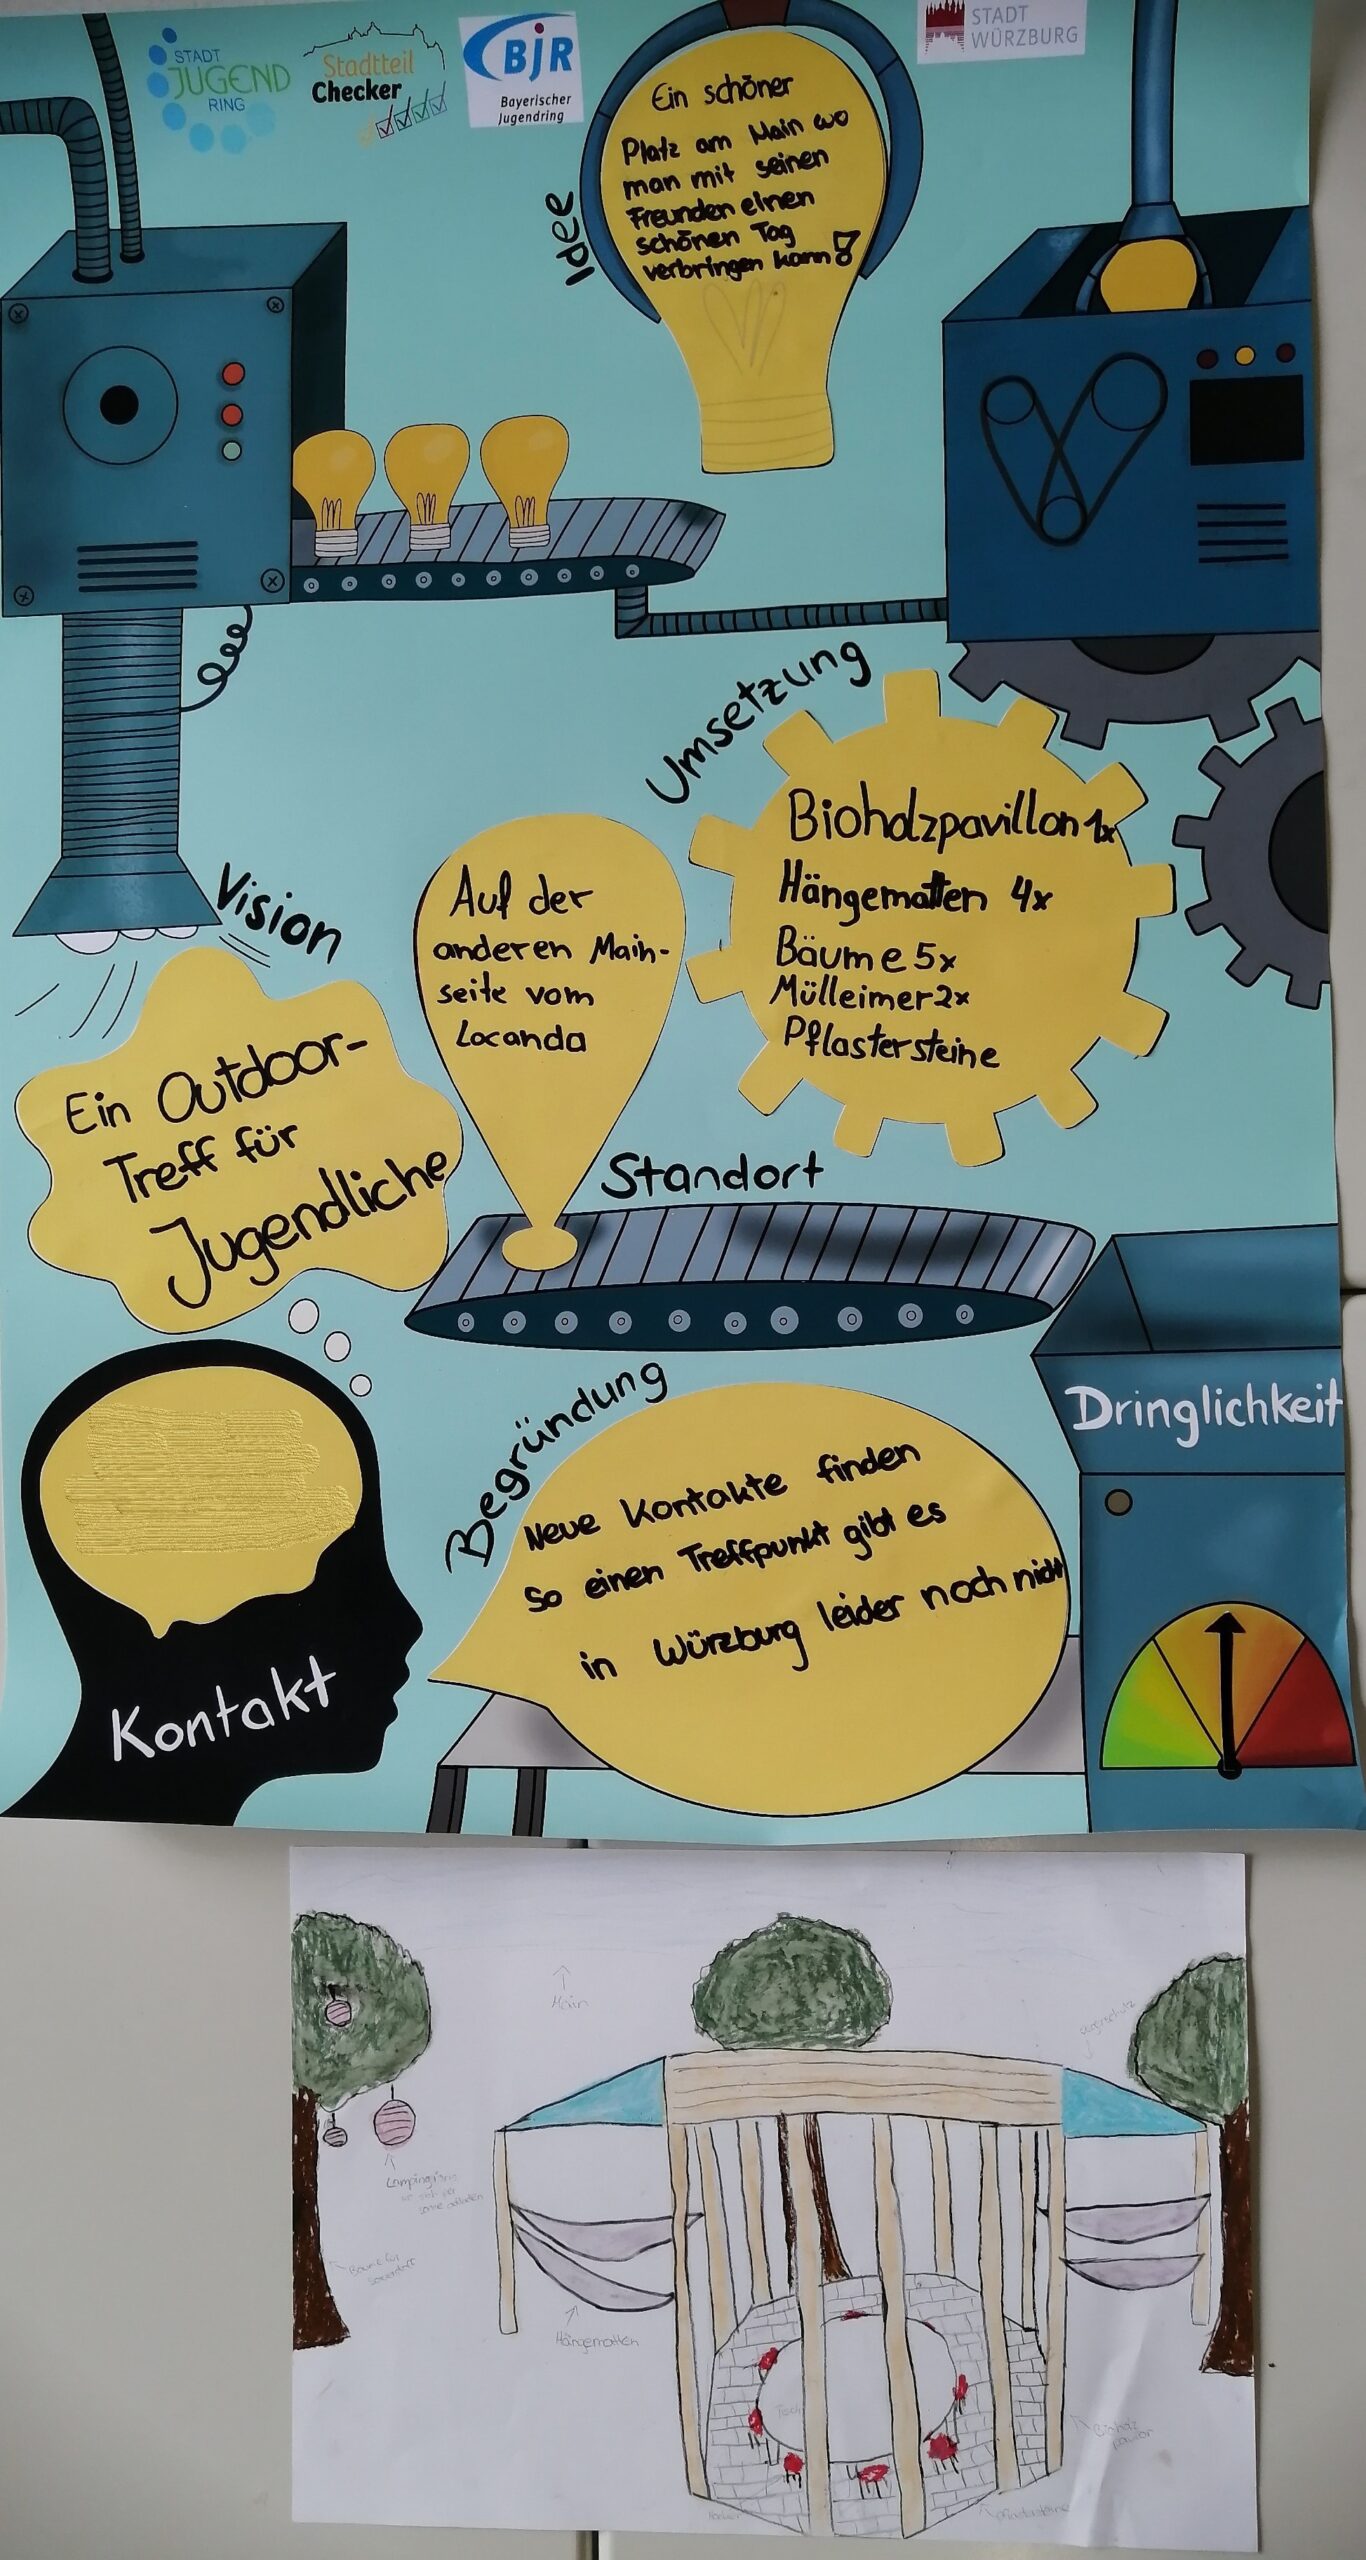 STADT
JUGEND
RING
Stadtteil
Checker
BJR
Bayerischer
Jugendring
STADT
WÜRZBURG
Idee
Ein schöner
Platz am Main wo
man mit seinen
Freunden einen
schönen Tag
verbringen kann!
Umsetzung
Bioholzpavillon 1x
Hängematten 4x
Bäume 5x
Mülleimer 2x
Pflastersteine
Vision
Ein Outdoor-
Treff für
Jugendliche
Auf der
anderen Main-
seite vom
Locanda
Standort
Begründung
Neue Kontakte finden
So einen Treffpunkt gibt es
in Würzburg leider noch nicht
Dringlichkeit
Kontakt
Main
Bäume für
Hängematten
Tisch
Bioholz
Pflastersteine